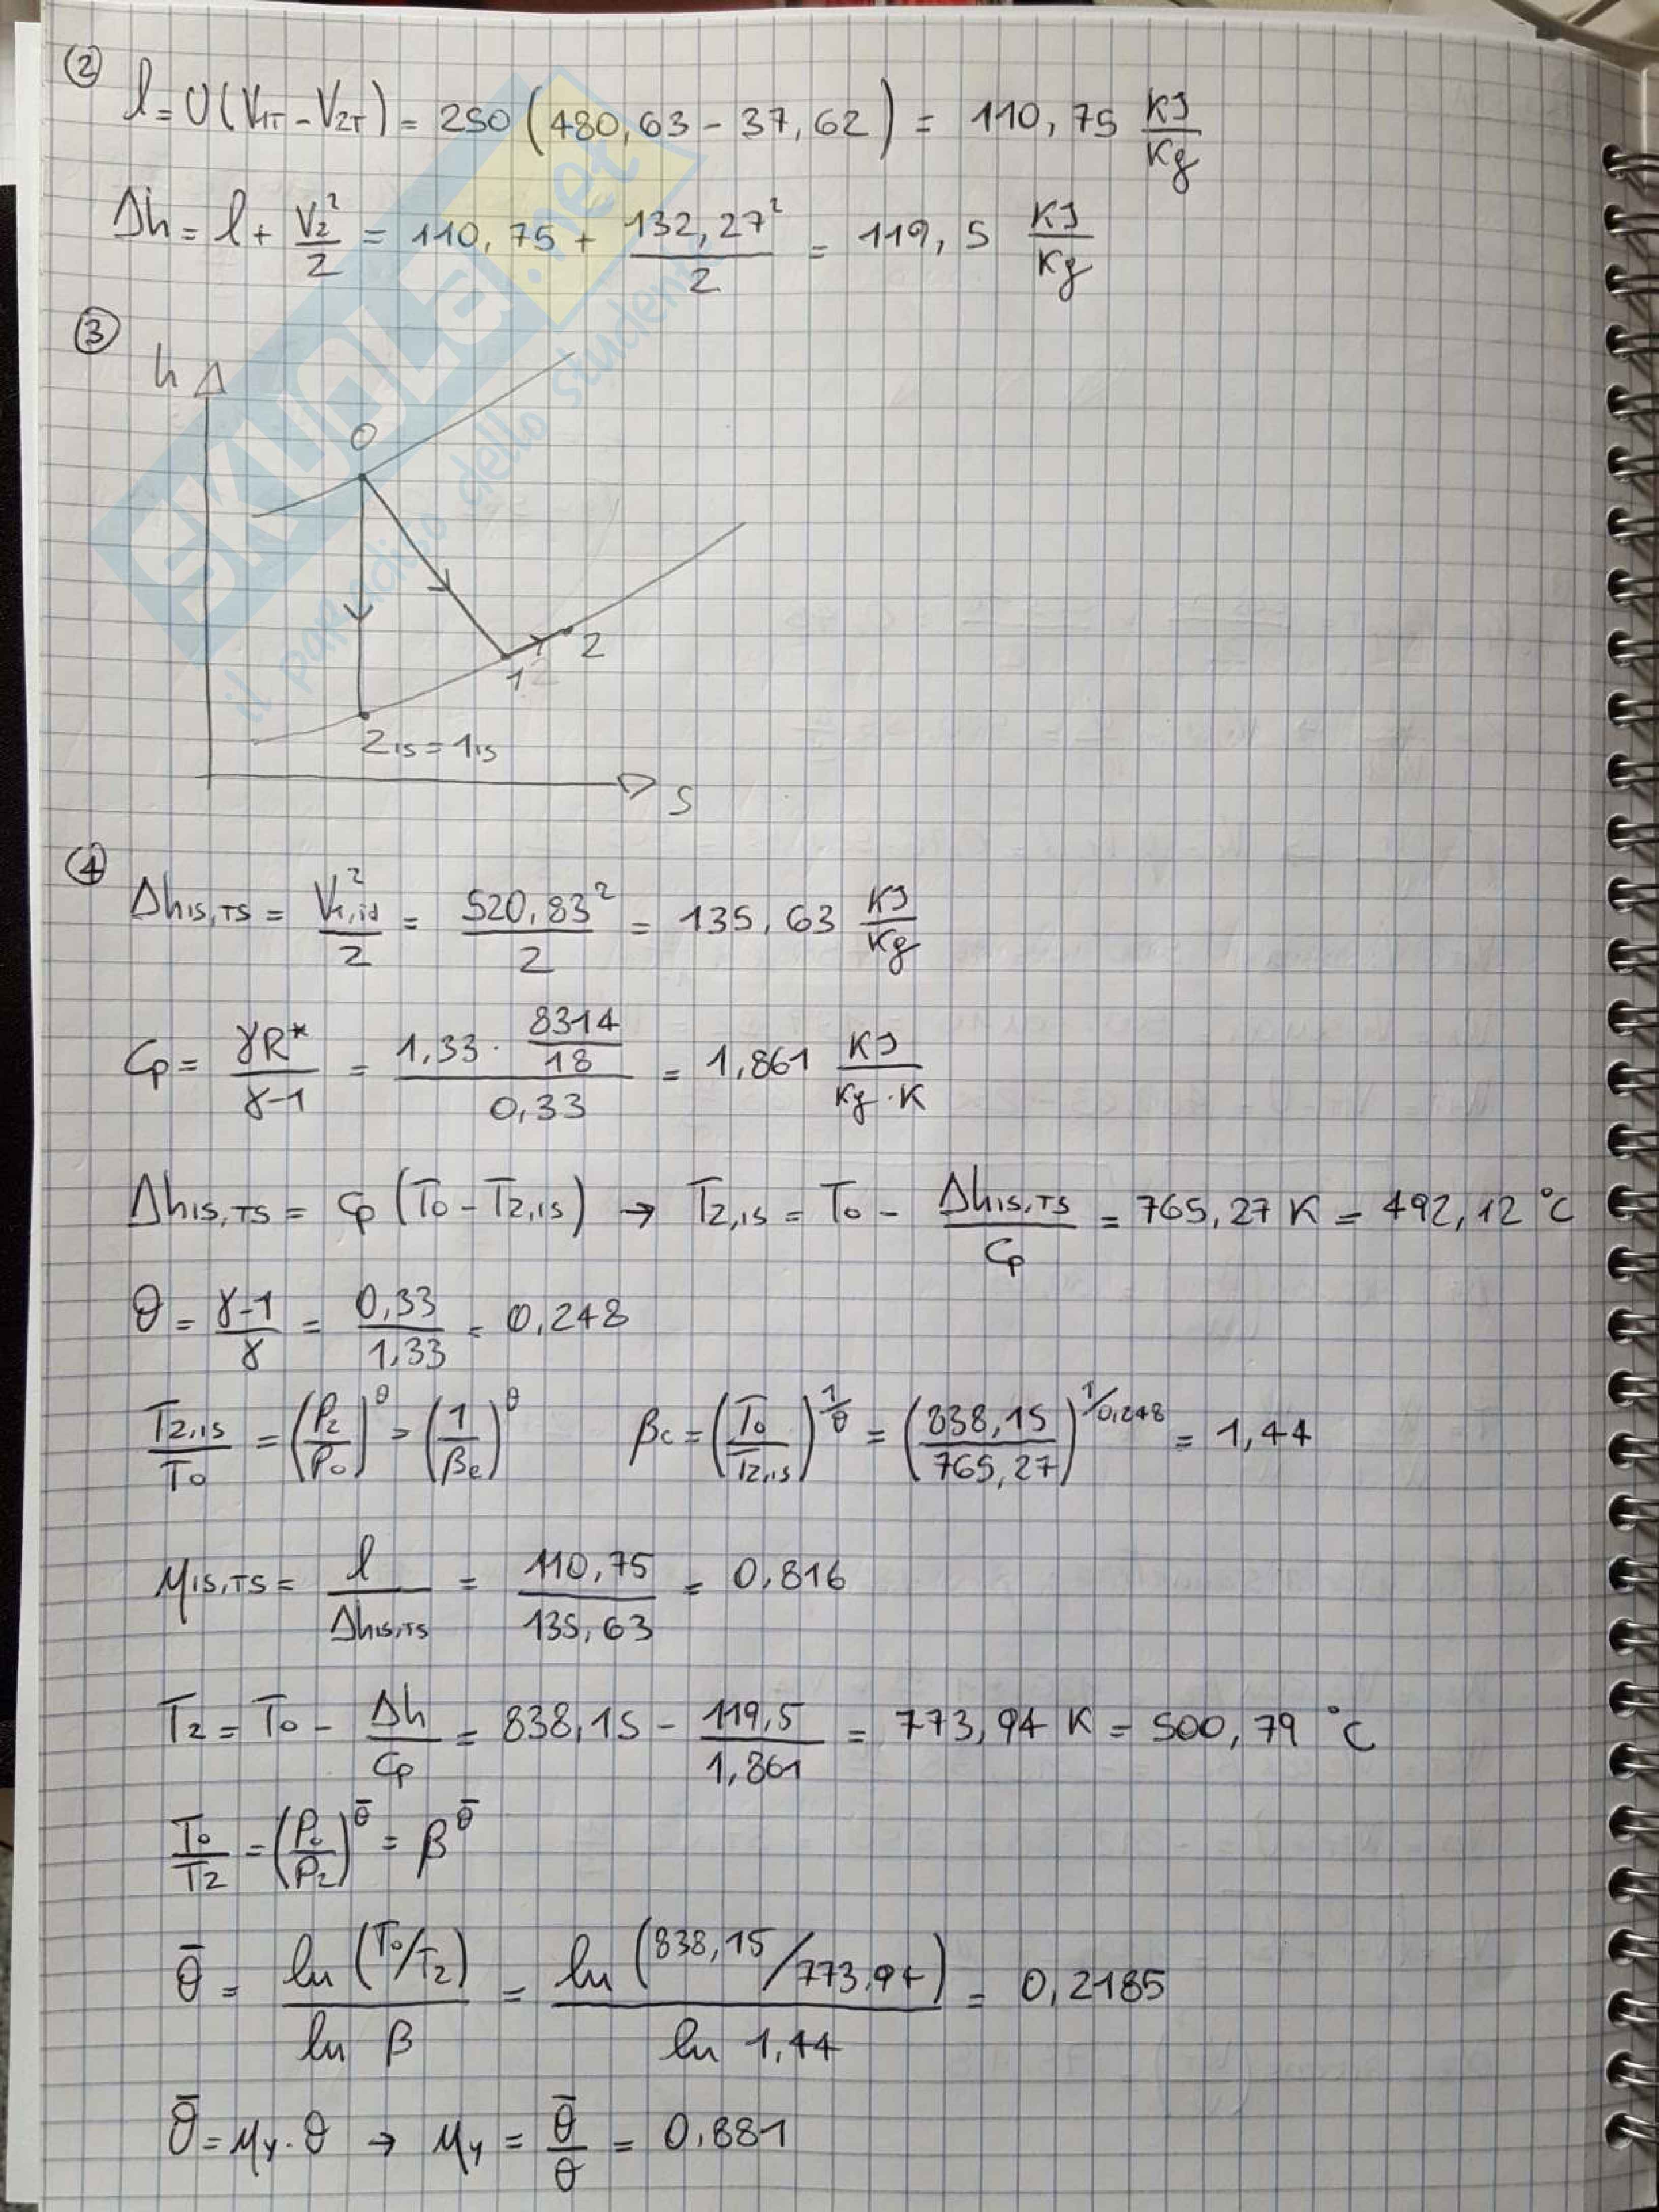 ②
l = U(V1T - V2T) = 250 (480,63 - 37,62) = 110,75 KJ/Kg
Δh = l + V2²/2 = 110,75 + 132,27²/2 = 119,5 KJ/Kg
③
h
0
1
2
2is = 1is
S
④
Δhis,TS = V1,id²/2 = 520,83²/2 = 135,63 KJ/Kg
Cp = γR*/(γ-1) = (1,33 · 8314/18)/0,33 = 1,861 KJ/(Kg·K)
Δhis,TS = Cp (T0 - T2,is) → T2,is = T0 - Δhis,TS/Cp = 765,27 K = 492,12 °C
θ = (γ-1)/γ = 0,33/1,33 = 0,248
T2,is/T0 = (P2/P0)^θ = (1/βe)^θ βe = (T0/T2,is)^(1/θ) = (838,15/765,27)^(1/0,248) = 1,44
ηis,TS = l/Δhis,TS = 110,75/135,63 = 0,816
T2 = T0 - Δh/Cp = 838,15 - 119,5/1,861 = 773,94 K = 500,79 °C
T0/T2 = (P0/P2)^θ̄ = β^θ̄
θ̄ = ln(T0/T2)/ln β = ln(838,15/773,94)/ln 1,44 = 0,2185
θ̄ = ηy · θ → ηy = θ̄/θ = 0,881
SKUOLA.net
il paradiso dello studente